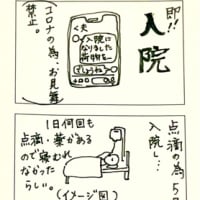 即!!
入院
<夫
入院に
なりました
荷物を…
でしょうね
(コロナの為、お見舞
禁止。)
点滴の為5
入院し…
1日何回も
点滴・薬がある
ので寝むれ
なかった
らしい。
(イメージ図)